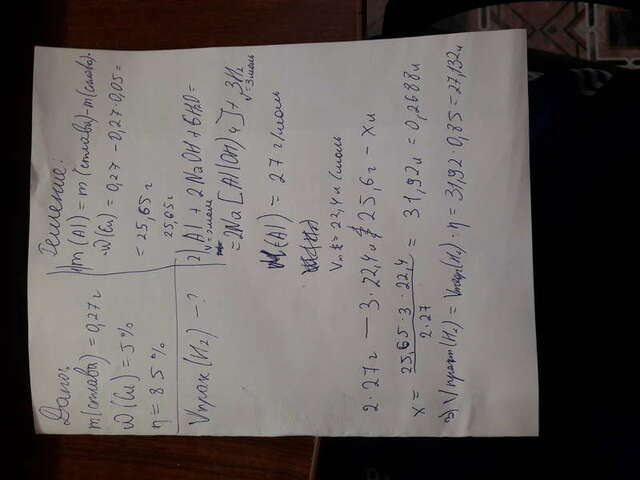 Дано:
m(сплава) = 0,27 г
W(Cu) = 5 %
η = 85 %
Vпрак(H₂) - ?
Решение:
1) m(Al) = m(сплава) - m(сплава)·
·W(Cu) = 0,27 - 0,27·0,05 =
= 25,65 г
25,65 г
2) 2Al + 2NaOH + 6H₂O =
ν = 2 моль
= 2Na[Al(OH)₄] + 3H₂
ν = 3 моль
M(Al) = 27 г/моль
Vm = 22,4 л/моль
2·27 г — 3·22,4 л
25,6 г - x л
x = 25,65·3·22,4 / 2·27 = 31,92 л = 0,2688 л
3) Vпракт(H₂) = Vтеор(H₂)·η = 31,92·0,85 = 27,132 л